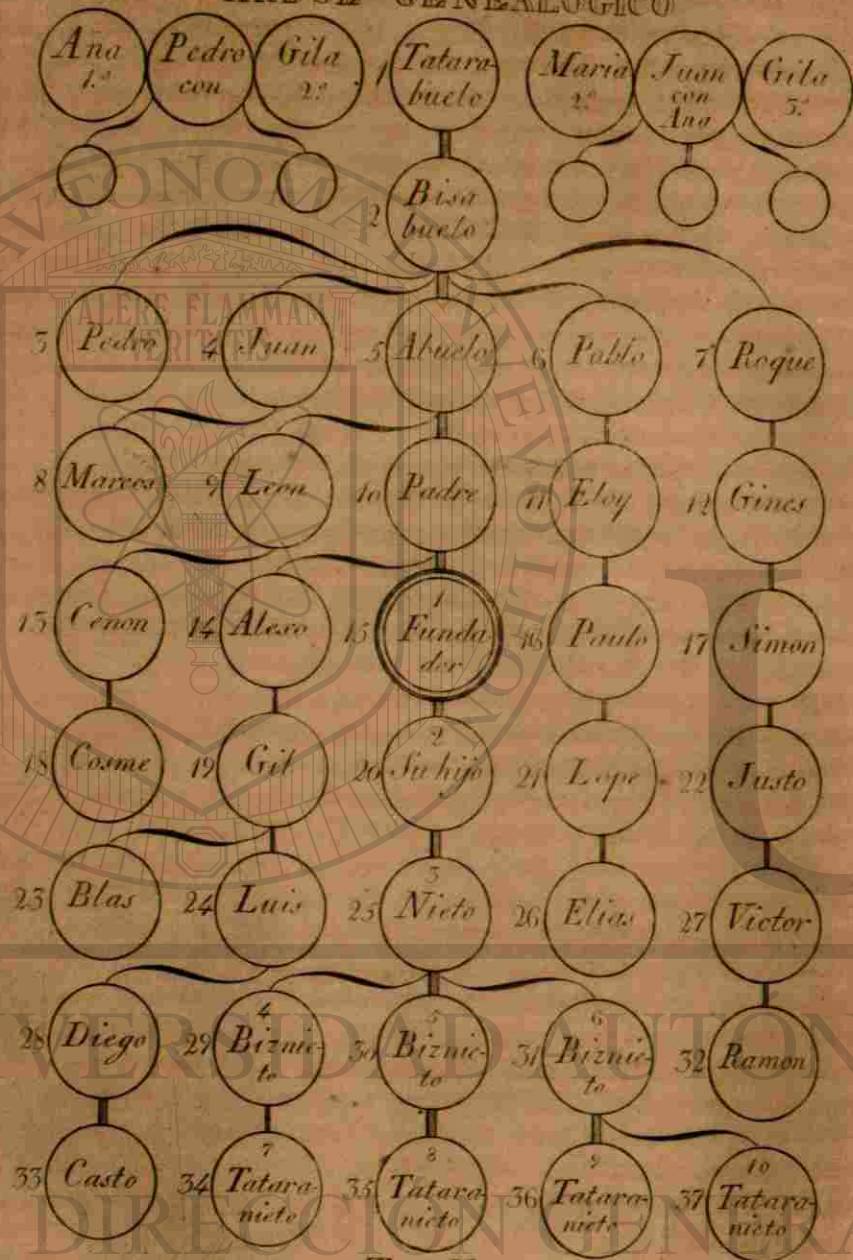 GENEALOGICO
Ana
1.ª
Pedro
con
Gila
2.ª
1
Tatara-
buelo
Maria
2.ª
Juan
con
Ana
Gila
3.ª
2
Bisa
buelo
3 Pedro
4 Juan
5 Abuelo
6 Pablo
7 Roque
8 Marcos
9 Leon
10 Padre
11 Eloy
12 Gines
13 Cenon
14 Alexo
15
1
Funda-
dor
16 Paulo
17 Simon
18 Cosme
19 Gil
20
2
Su hijo
21 Lope
22 Justo
23 Blas
24 Luis
25
3
Nieto
26 Elias
27 Victor
28 Diego
29
4
Biznie-
to
30
5
Biznie-
to
31
6
Biznie-
to
32 Ramon
33 Casto
34
7
Tatara-
nieto
35
8
Tatara-
nieto
36
9
Tatara-
nieto
37
10
Tatara-
nieto
ALERE FLAMMAM
VERITATIS